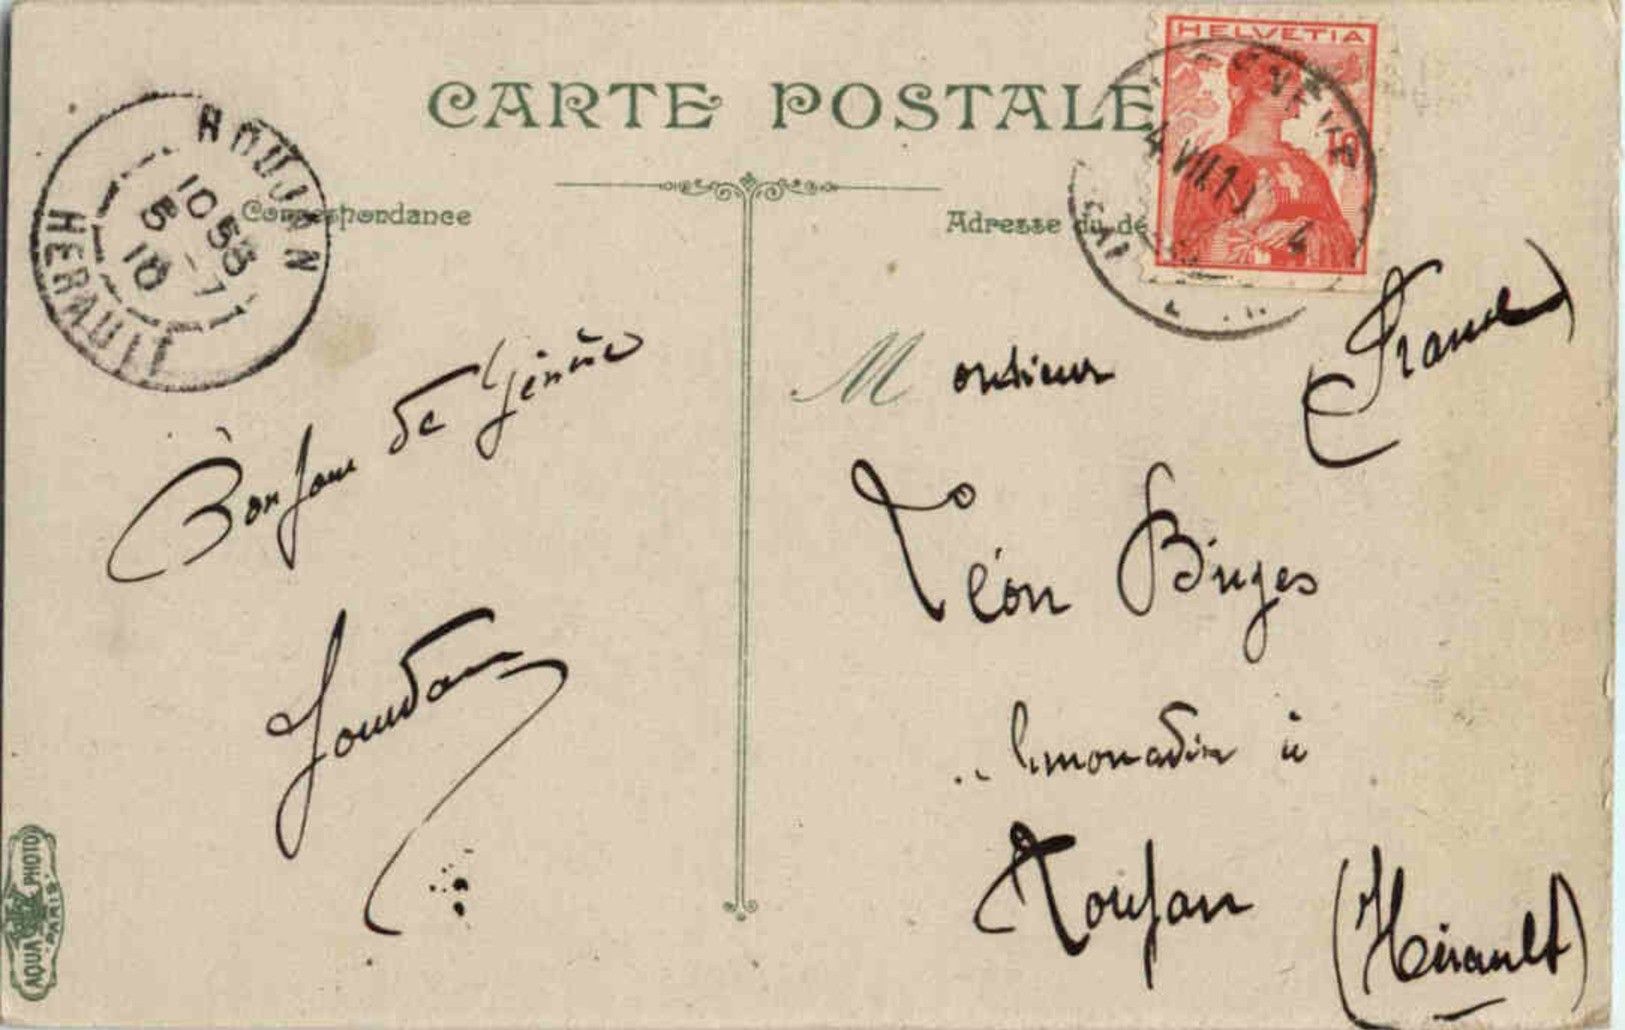 CARTE POSTALE
HELVETIA
ROUJAN
10 58
5 - 7
10
HERAULT
Correspondance
Adresse du de
4 VII 10
Bonjour de Genève
Jourdan
Monsieur
(France)
Léon
limonadier à
Roujan
(Hérault)
AQUA PHOTO
PARIS